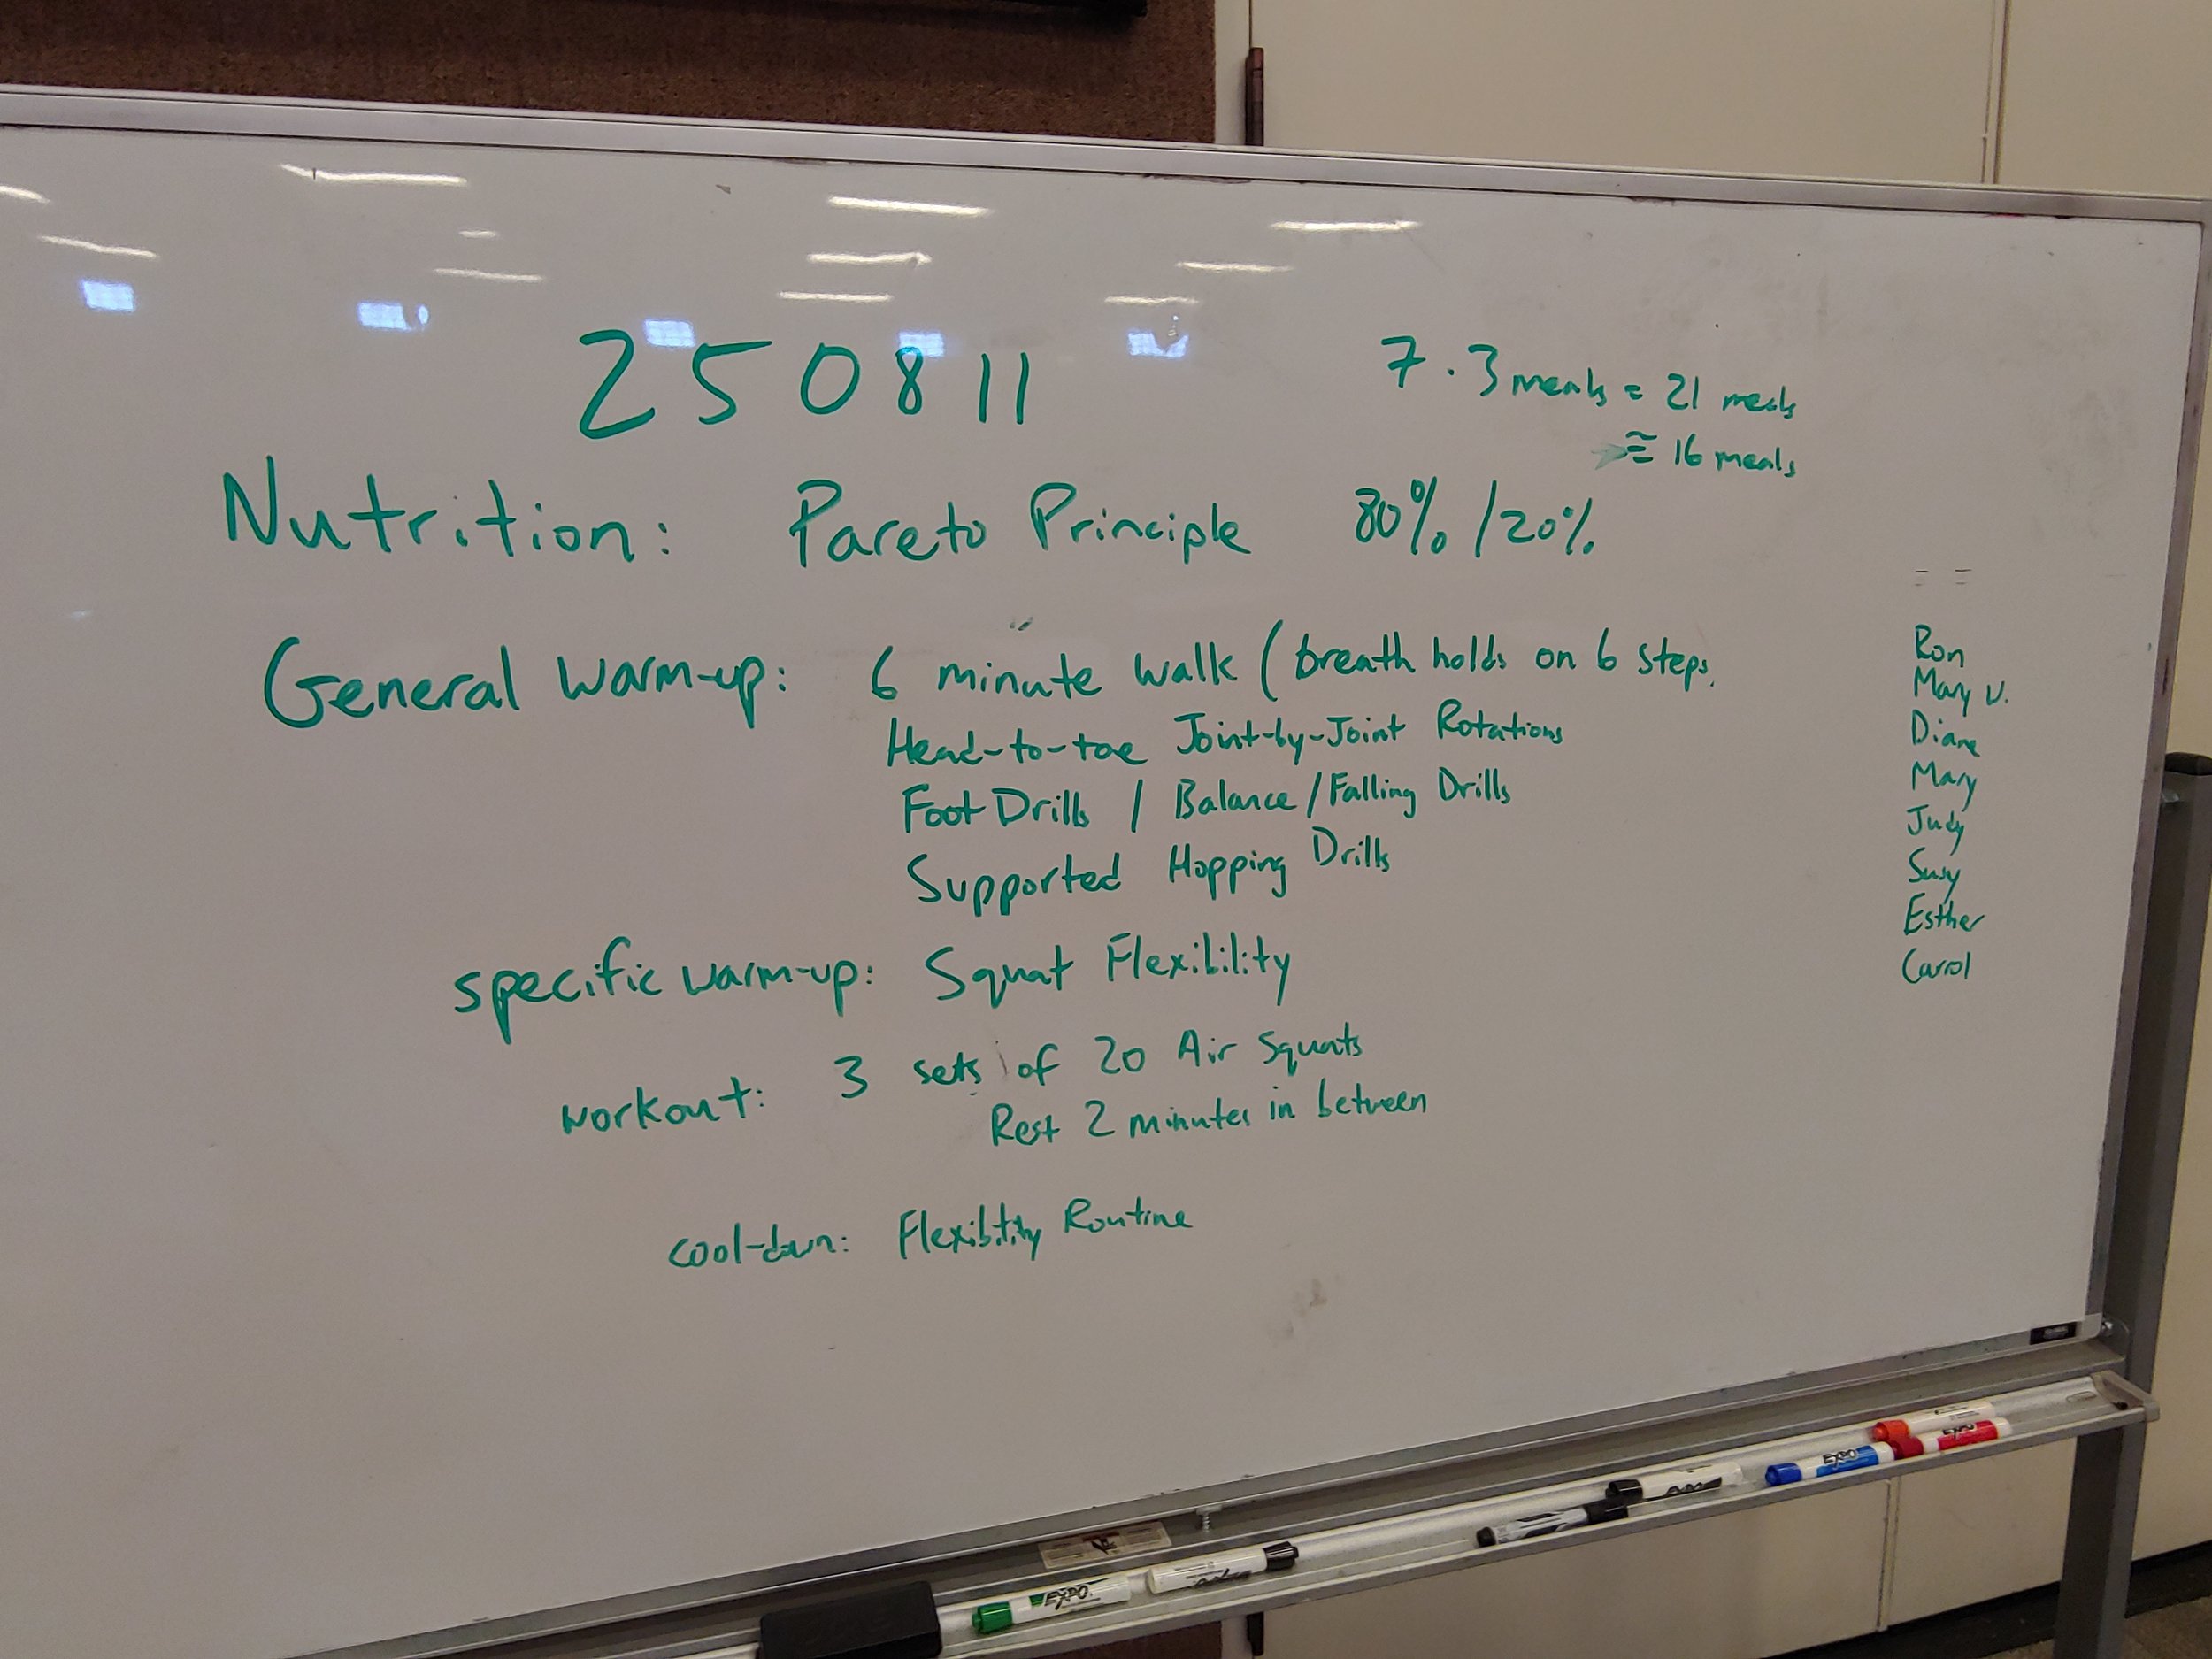 250811
7 · 3 meals = 21 meals
≅ 16 meals
Nutrition: Pareto Principle 80% / 20%
General warm-up: 6 minute walk (breath holds on 6 steps.
Head-to-toe Joint-by-Joint Rotations
Foot Drills / Balance / Falling Drills
Supported Hopping Drills
specific warm-up: Squat Flexibility
workout: 3 sets of 20 Air Squats
Rest 2 minutes in between
cool-down: Flexibility Routine
Ron
Mary V.
Diane
Mary
Judy
Susy
Esther
Carol
EXPO
EXPO
EXPO